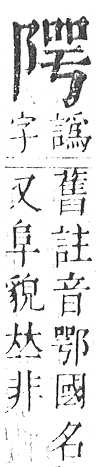 譌
字
舊註音鄂國名
又阜貌𠀤非